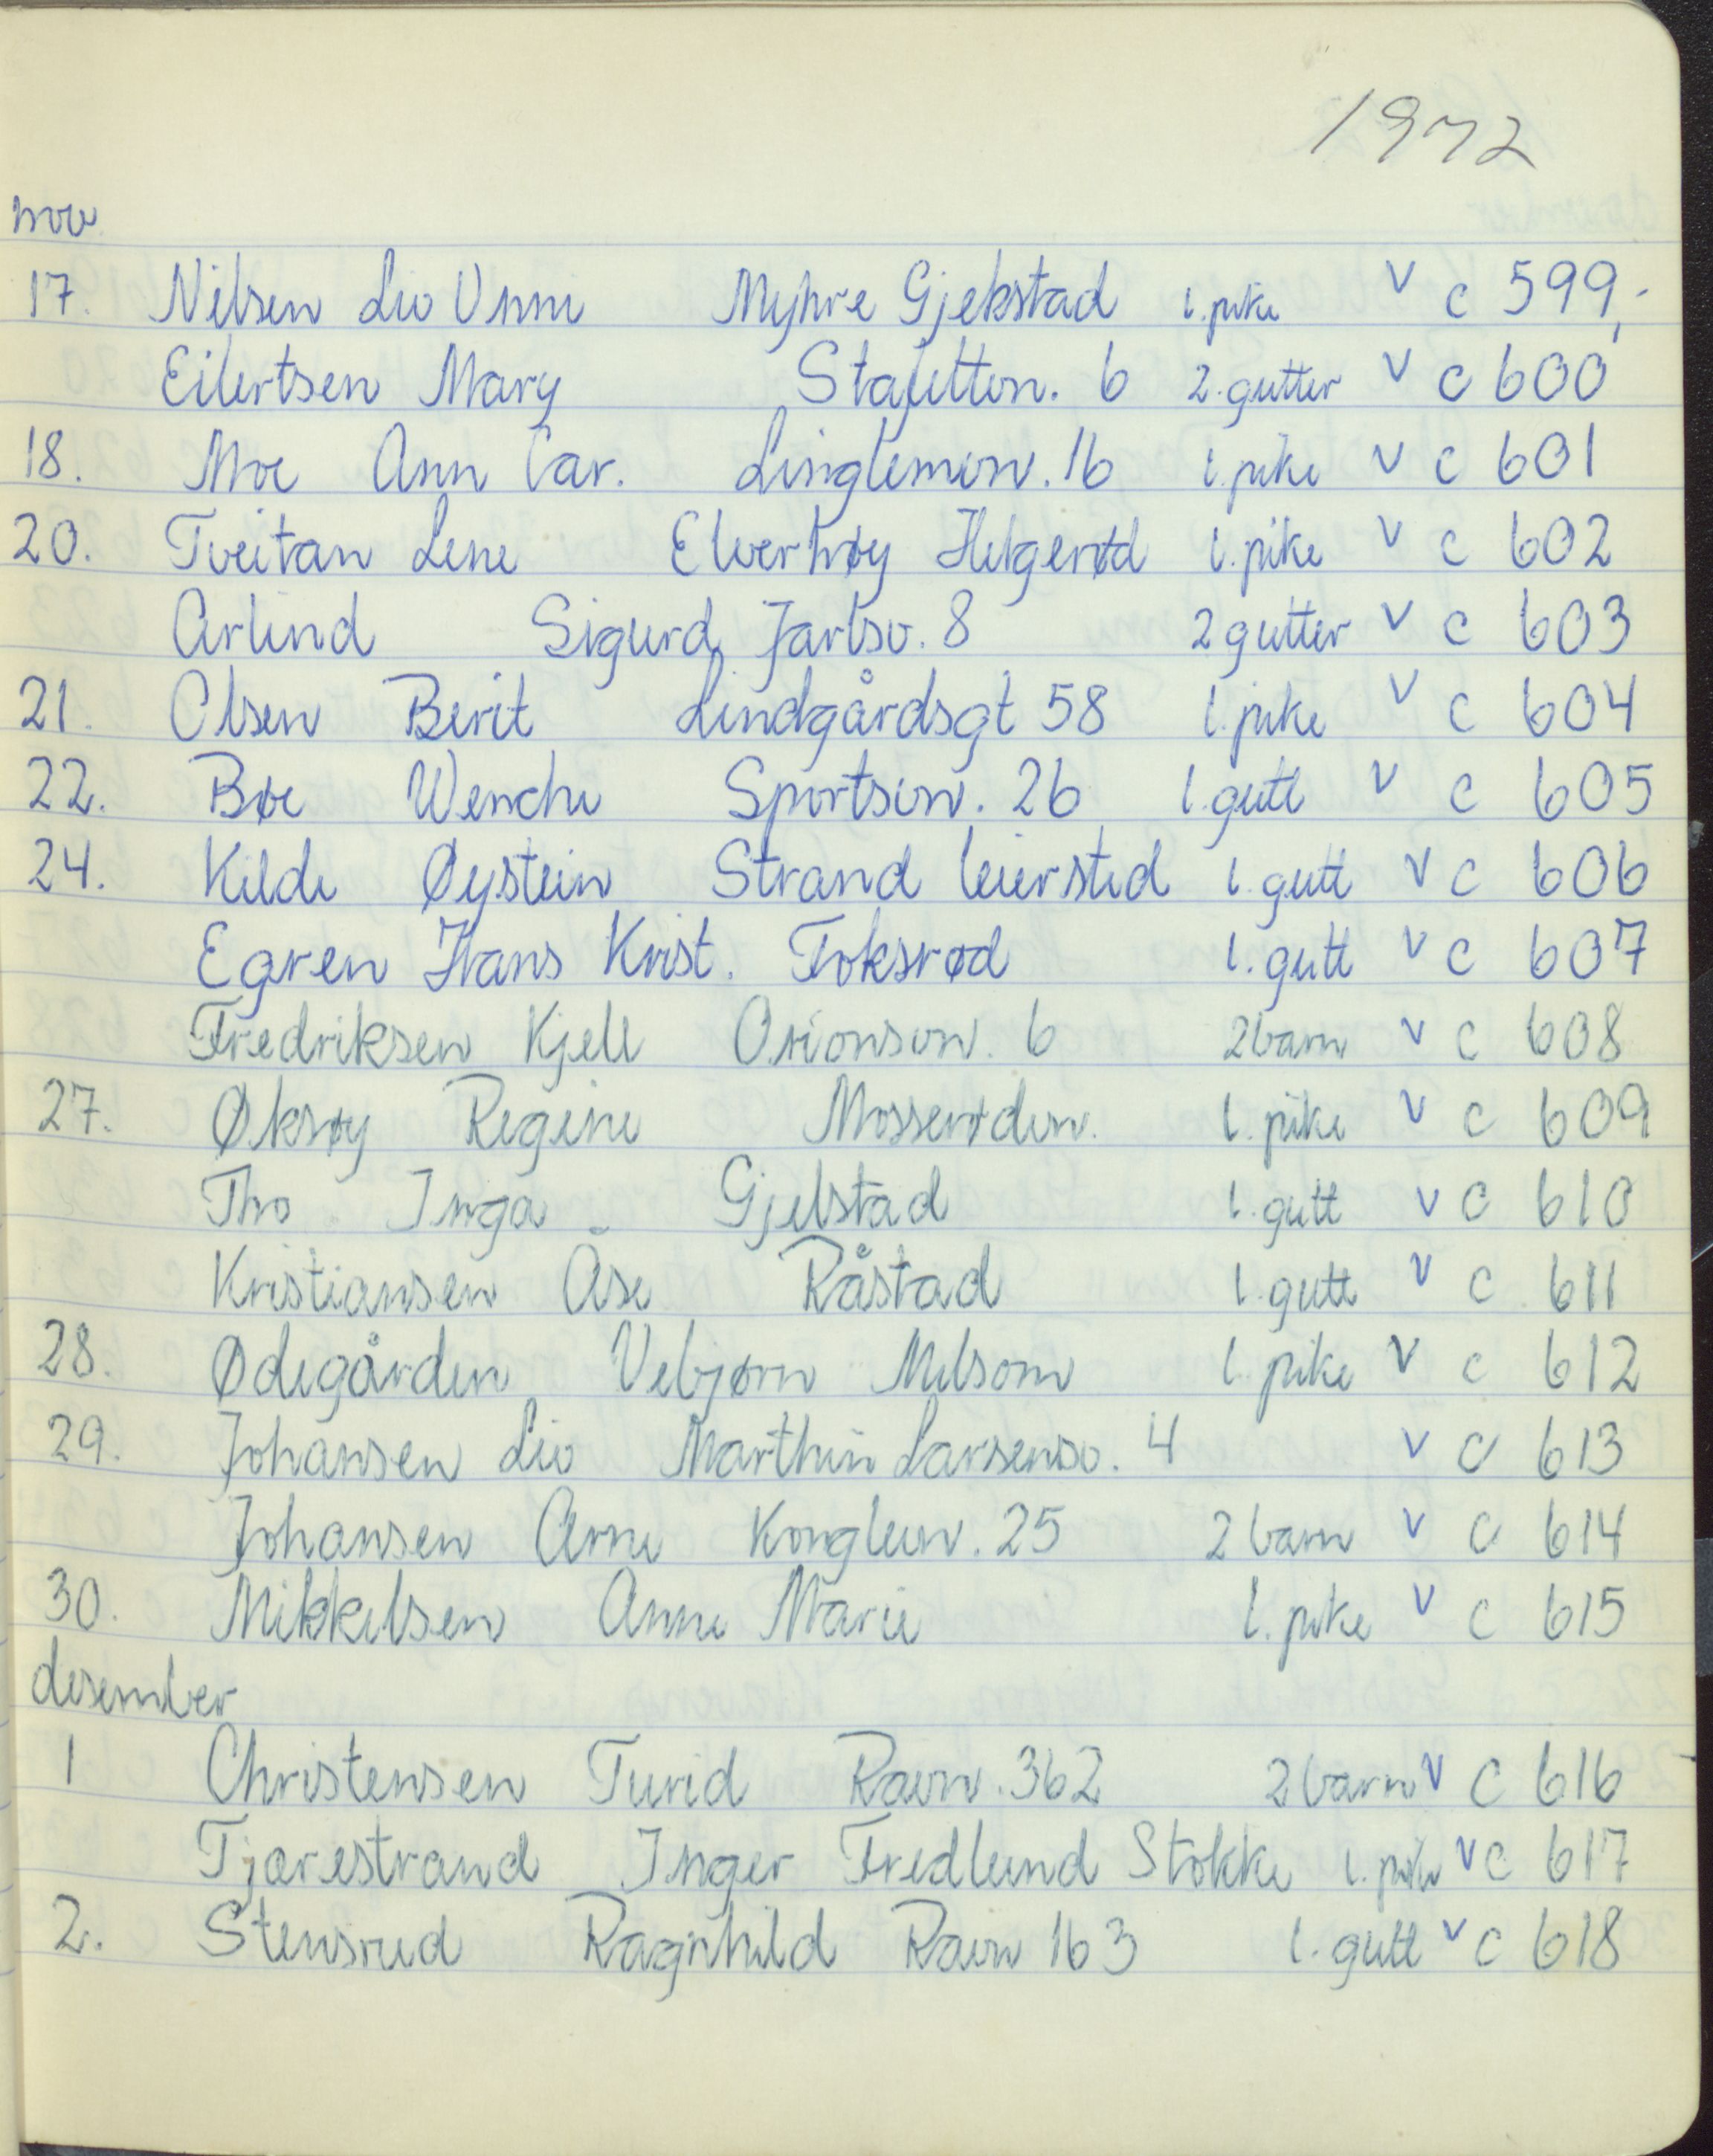 1972
nov.
17. Nilsen Liv Unni Myhre Gjekstad 1. pike v c 599,-
Eilertsen Mary Stafettvn. 6 2. gutter v c 600
18. Moe Ann Car. Linglemvn. 16 1. pike v c 601
20. Tveitan Lene Elverhøy Helgerød 1. pike v c 602
Arlind Sigurd Jarlsv. 8 2 gutter v c 603
21. Olsen Berit Lindgårdsgt 58 1. pike v c 604
22. Bøe Wenche Sportsvn. 26 1. gutt v c 605
24. Kilde Øystein Strand leirsted 1. gutt v c 606
Egren Hans Krist. Fokserød 1. gutt v c 607
Fredriksen Kjell Orionsvn. 6 2 barn v c 608
27. Øksøy Regine Mosserødvn. 1. pike v c 609
Tho Inga Gjelstad 1. gutt v c 610
Kristiansen Åse Råstad 1. gutt v c 611
28. Ødegården Vebjørn Melsom 1. pike v c 612
29. Johansen Liv Marthin Larsensv. 4 v c 613
Johansen Arne Konglevn. 25 2 barn v c 614
30. Mikkelsen Anne Marie 1. pike v c 615
desember
1 Christensen Turid Ravn. 362 2 barn v c 616
Tjærestrand Inger Fredlund Stokke 1. pike v c 617
2. Stensrud Ragnhild Ravn 163 1. gutt v c 618